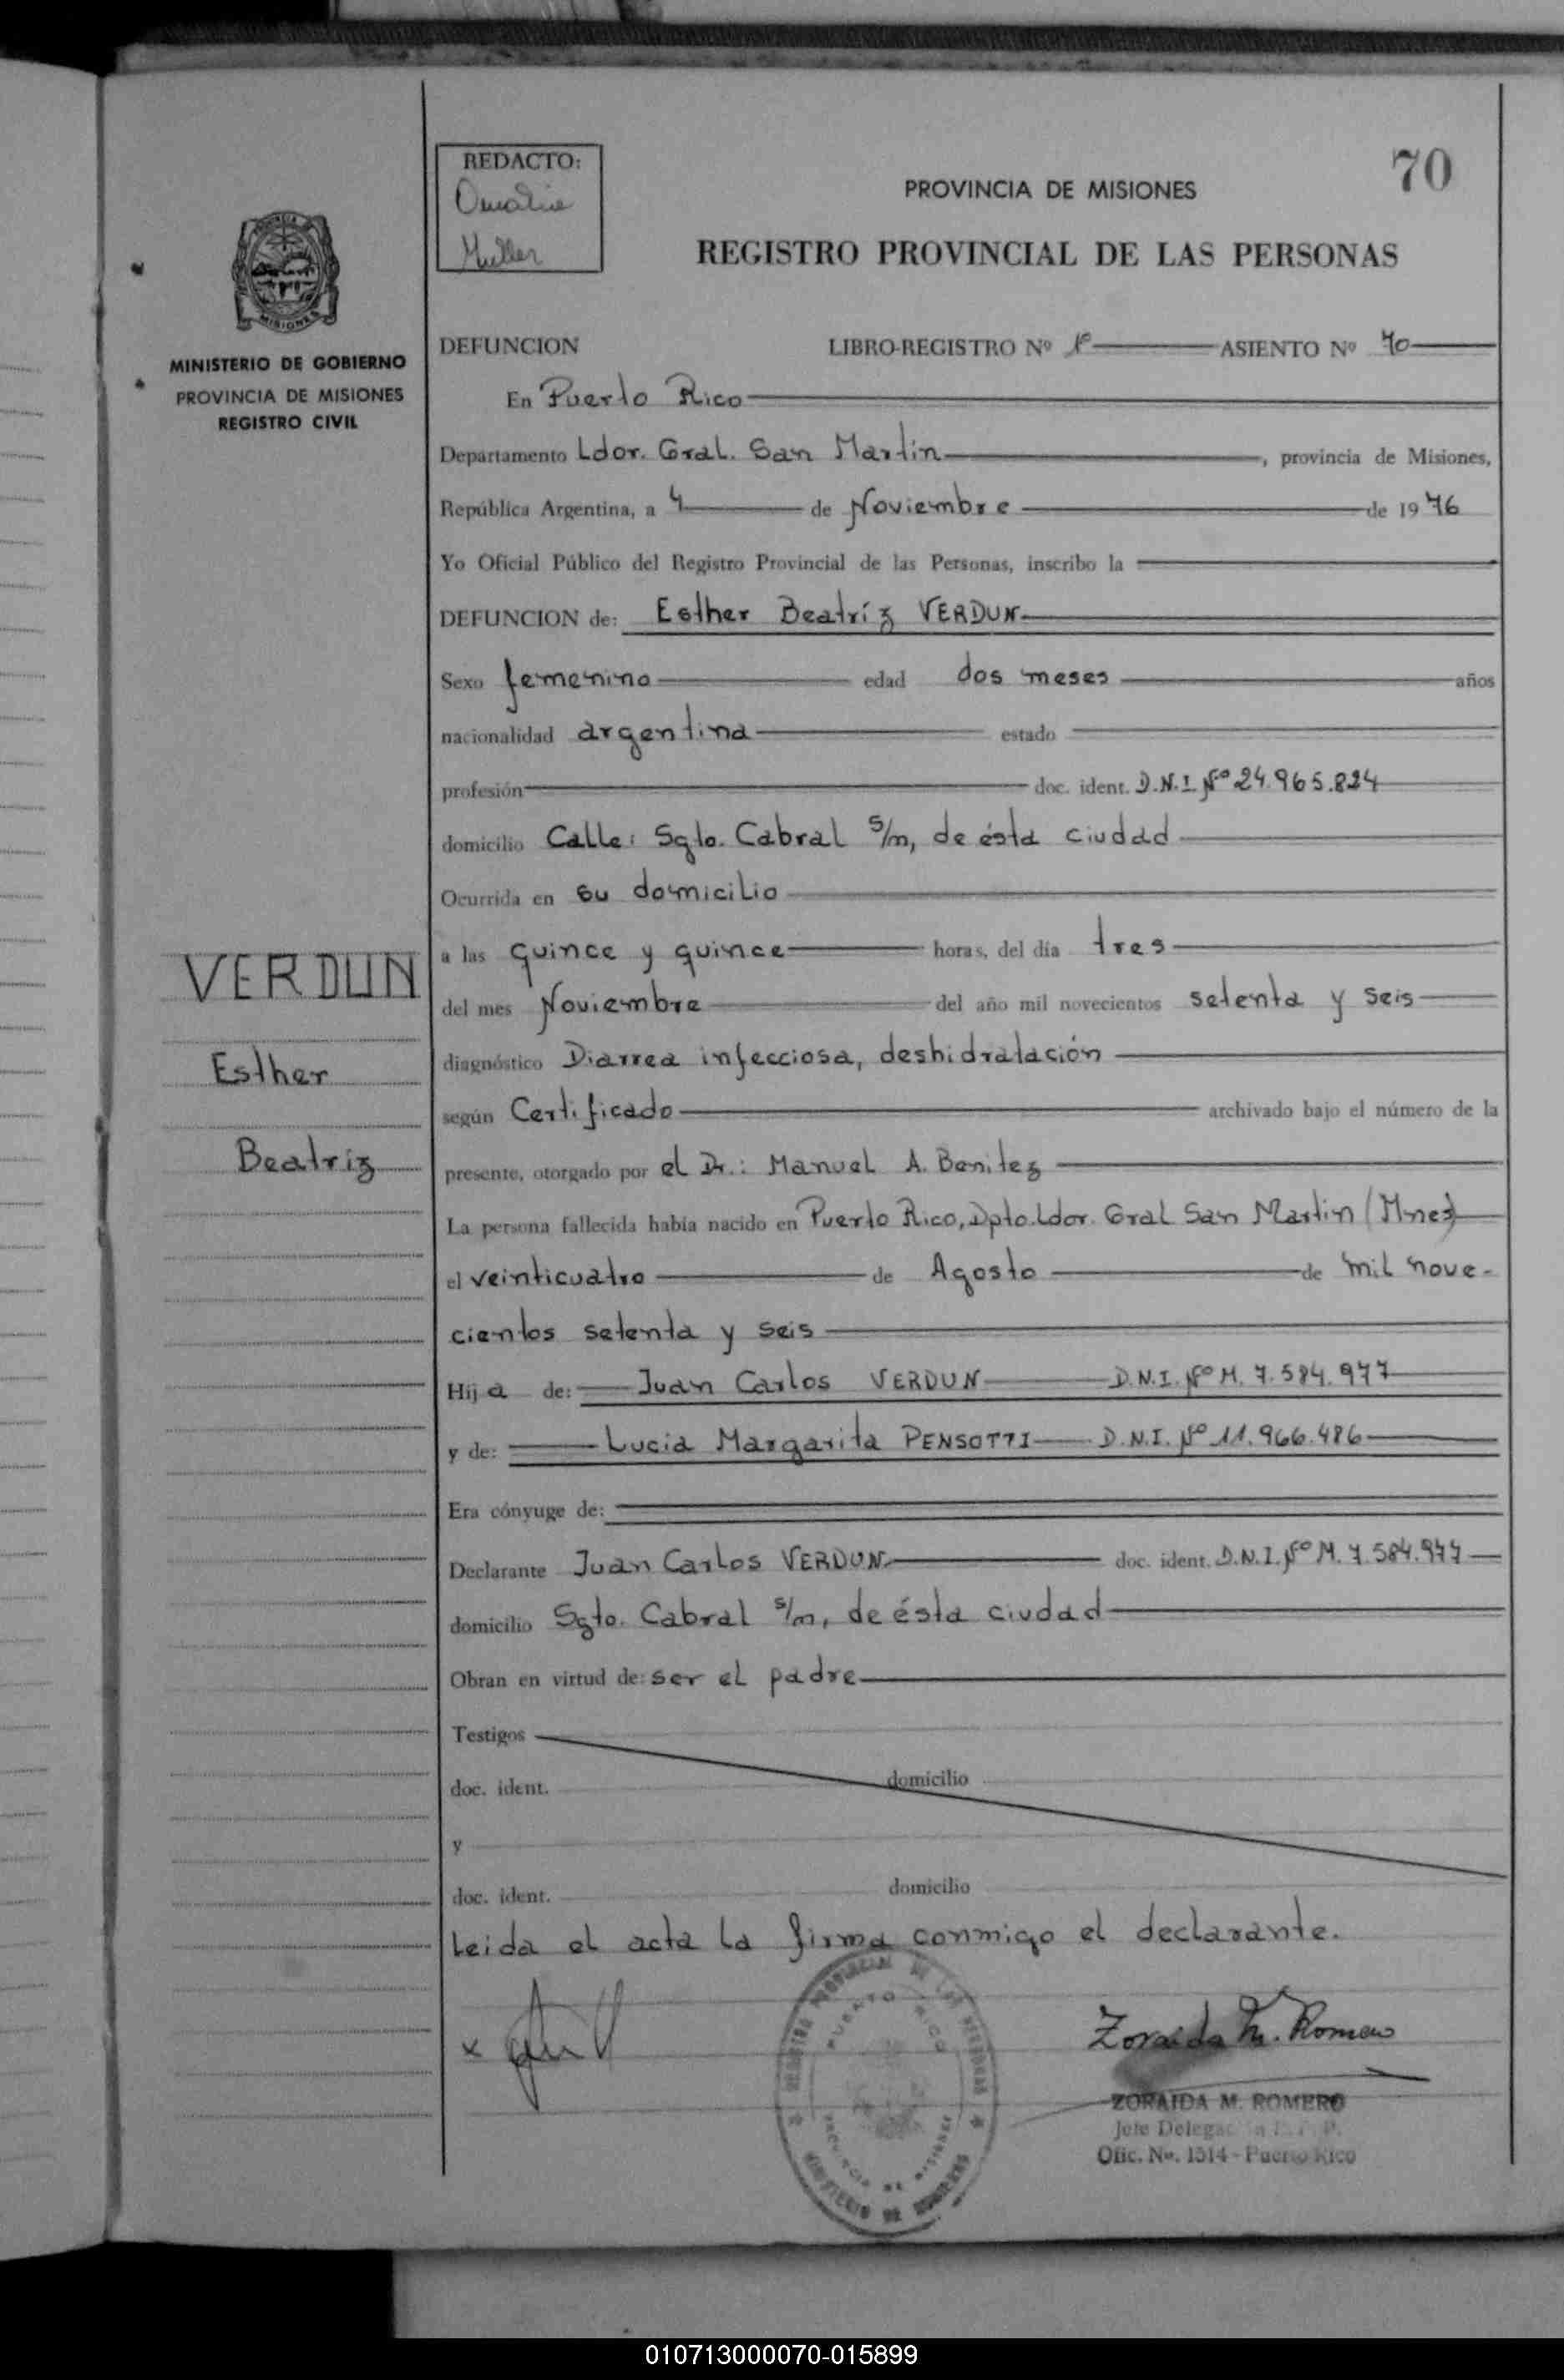 70
REDACTO:
Muller
PROVINCIA DE MISIONES
REGISTRO PROVINCIAL DE LAS PERSONAS
MISIONES
MINISTERIO DE GOBIERNO
PROVINCIA DE MISIONES
REGISTRO CIVIL
DEFUNCION LIBRO-REGISTRO Nº 1º ASIENTO Nº 70
En Puerto Rico
Departamento Ldor. Gral. San Martín, provincia de Misiones,
República Argentina, a 4 de Noviembre de 1976
Yo Oficial Público del Registro Provincial de las Personas, inscribo la
DEFUNCION de: Esther Beatríz VERDUN
Sexo femenino edad dos meses años
nacionalidad argentina estado
profesión doc. ident. D.N.I Nº 24.965.824
domicilio Calle: Sgto. Cabral s/n, de ésta ciudad
Ocurrida en su domicilio
a las quince y quince horas, del día tres
del mes Noviembre del año mil novecientos setenta y seis
diagnóstico Diarrea infecciosa, deshidratación
según Certificado archivado bajo el número de la
presente, otorgado por el Dr.: Manuel A. Benitez
La persona fallecida había nacido en Puerto Rico, Dpto. Ldor. Gral San Martin (Mnes)
el veinticuatro de Agosto de mil nove-
cientos setenta y seis
Hija de: Juan Carlos VERDUN D.N.I. Nº M. 7.584.977
y de: Lucia Margarita PENSOTTI D.N.I. Nº 11.966.486
Era cónyuge de:
Declarante Juan Carlos VERDUN doc. ident. D.N.I. Nº M. 7.584.977
domicilio Sgto. Cabral s/n, de ésta ciudad
Obran en virtud de: ser el padre
Testigos
doc. ident. domicilio
y
doc. ident. domicilio
Leida el acta la firma conmigo el declarante.
VERDUN
Esther
Beatriz
x
REGISTRO PROVINCIAL DE LAS PERSONAS
PUERTO RICO
PROVINCIA DE MISIONES
MINISTERIO DE GOBIERNO
Zoraida M. Romero
ZORAIDA M. ROMERO
Jefe Delegación R. P. P.
Ofic. Nº. 1514 - Puerto Rico
010713000070-015899